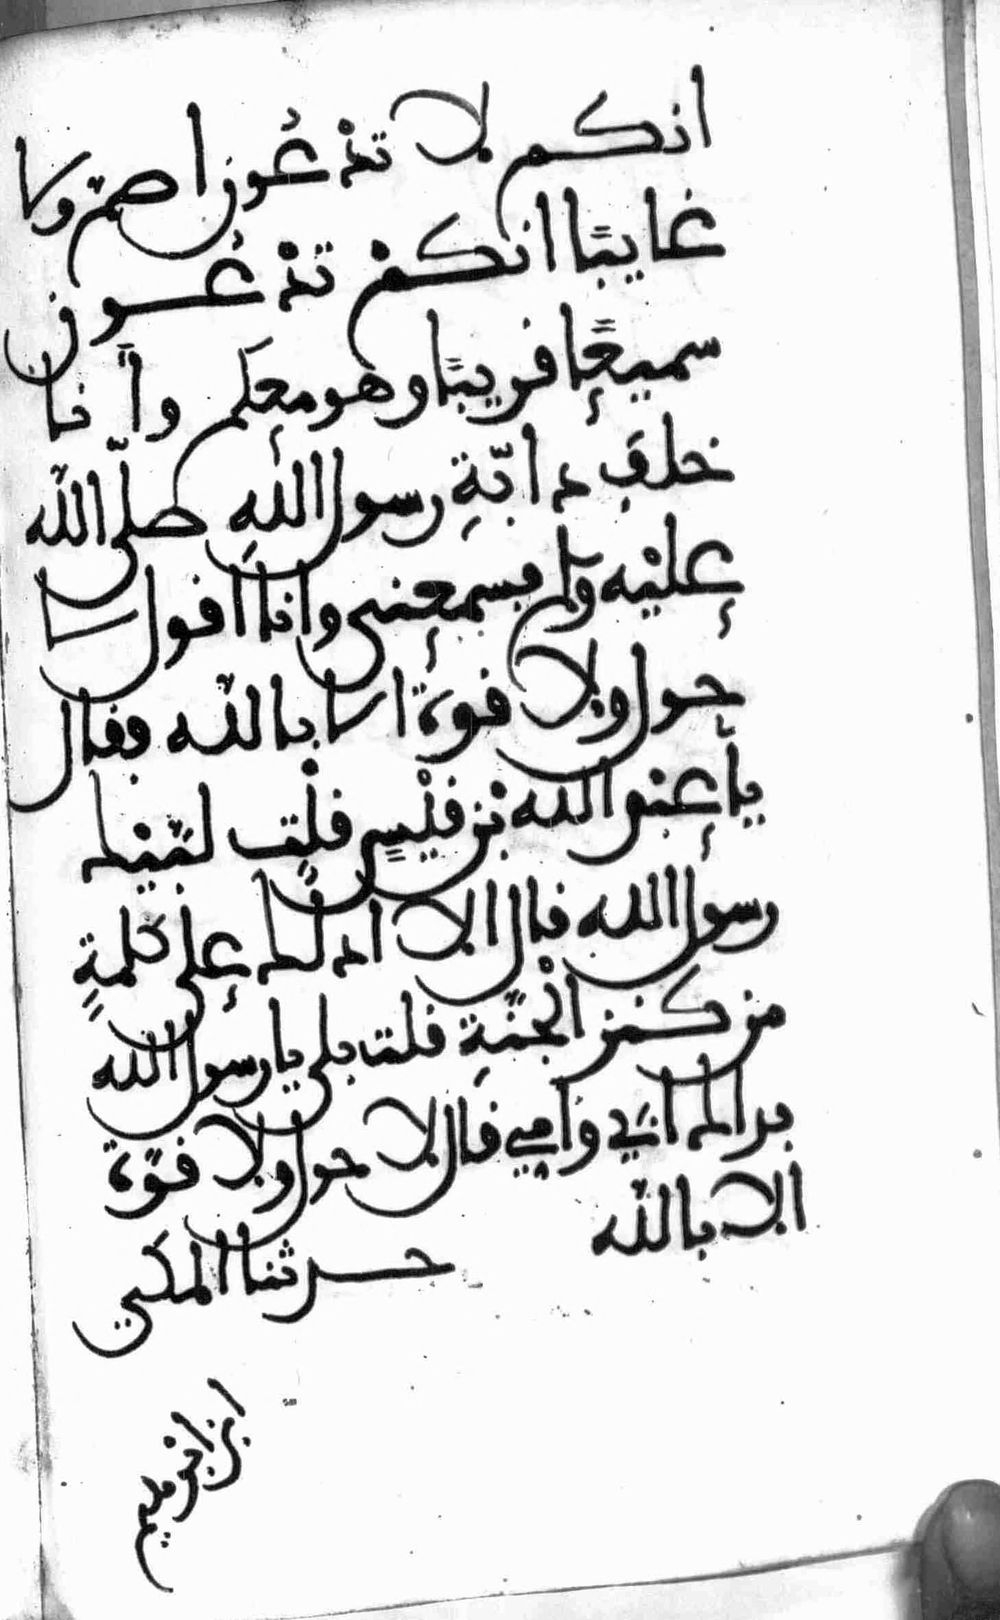 انكم لا تدْعُون اصمّ ولا
غايبًا انكمْ تدْعُون
سميعًا قريبًا وهو معَكم وأنا
خلفَ دابّةِ رسول اللهِ صلّى الله
عليْه وسلم فسمعنى وانا اقول لا
حول ولا قوةَ الا بالله فقال
يا عبد الله بْن قيْسٍ قلْت لبّيْك
رسول الله قال الا ادلك على كَلمةٍ
من كنز الْجنّةِ قلت بلى يا رسول الله
فداك ابَي وأمي قال لا حول ولا قوّة
الا بالله حدثنا المكَي
ابن ابْرهيم